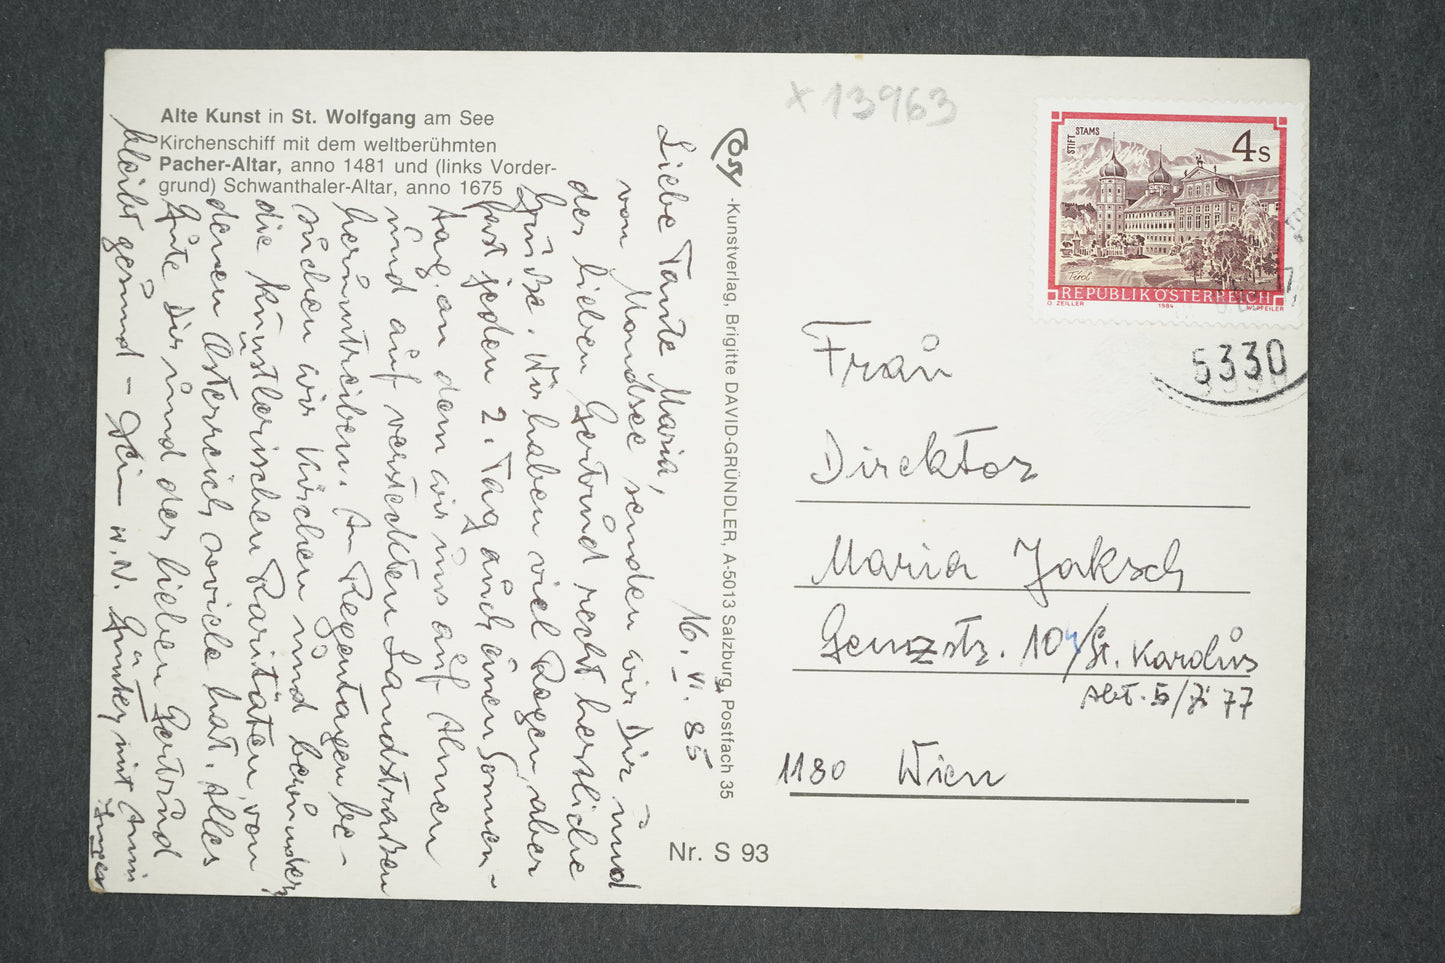 Alte Kunst in St. Wolfgang am See
Kirchenschiff mit dem weltberühmten
Pacher-Altar, anno 1481 und (links Vorder-
grund) Schwanthaler-Altar, anno 1675
16. VI. 85
Liebe Tante Maria,
von Mondsee senden wir Dir und
der lieben Gertrud recht herzliche
Grüße. Wir haben viel Regen, aber
fast jeden 2. Tag auch einen Sonnen-
tag, an dem wir uns auf Almen
und auf versteckten Landstraßen
herumtreiben. An Regentagen be-
suchen wir Kirchen und bewundern
die künstlerischen Raritäten, von
denen Österreich soviele hat. Alles
Gute Dir und der lieben Gertrud
bleibt gesund - Dein w. N. Günter mit Anni
Cosy
-Kunstverlag, Brigitte DAVID-GRÜNDLER, A-5013 Salzburg, Postfach 35
Nr. S 93
x 13963
STIFT STAMS
4 S
Tirol
REPUBLIK ÖSTERREICH
O. ZEILLER 1984 W. PFEILER
5330
Frau
Direktor
Maria Jaksch
Genzstr. 10/St. Karolus
Abt. 5/Zi 77
1180 Wien